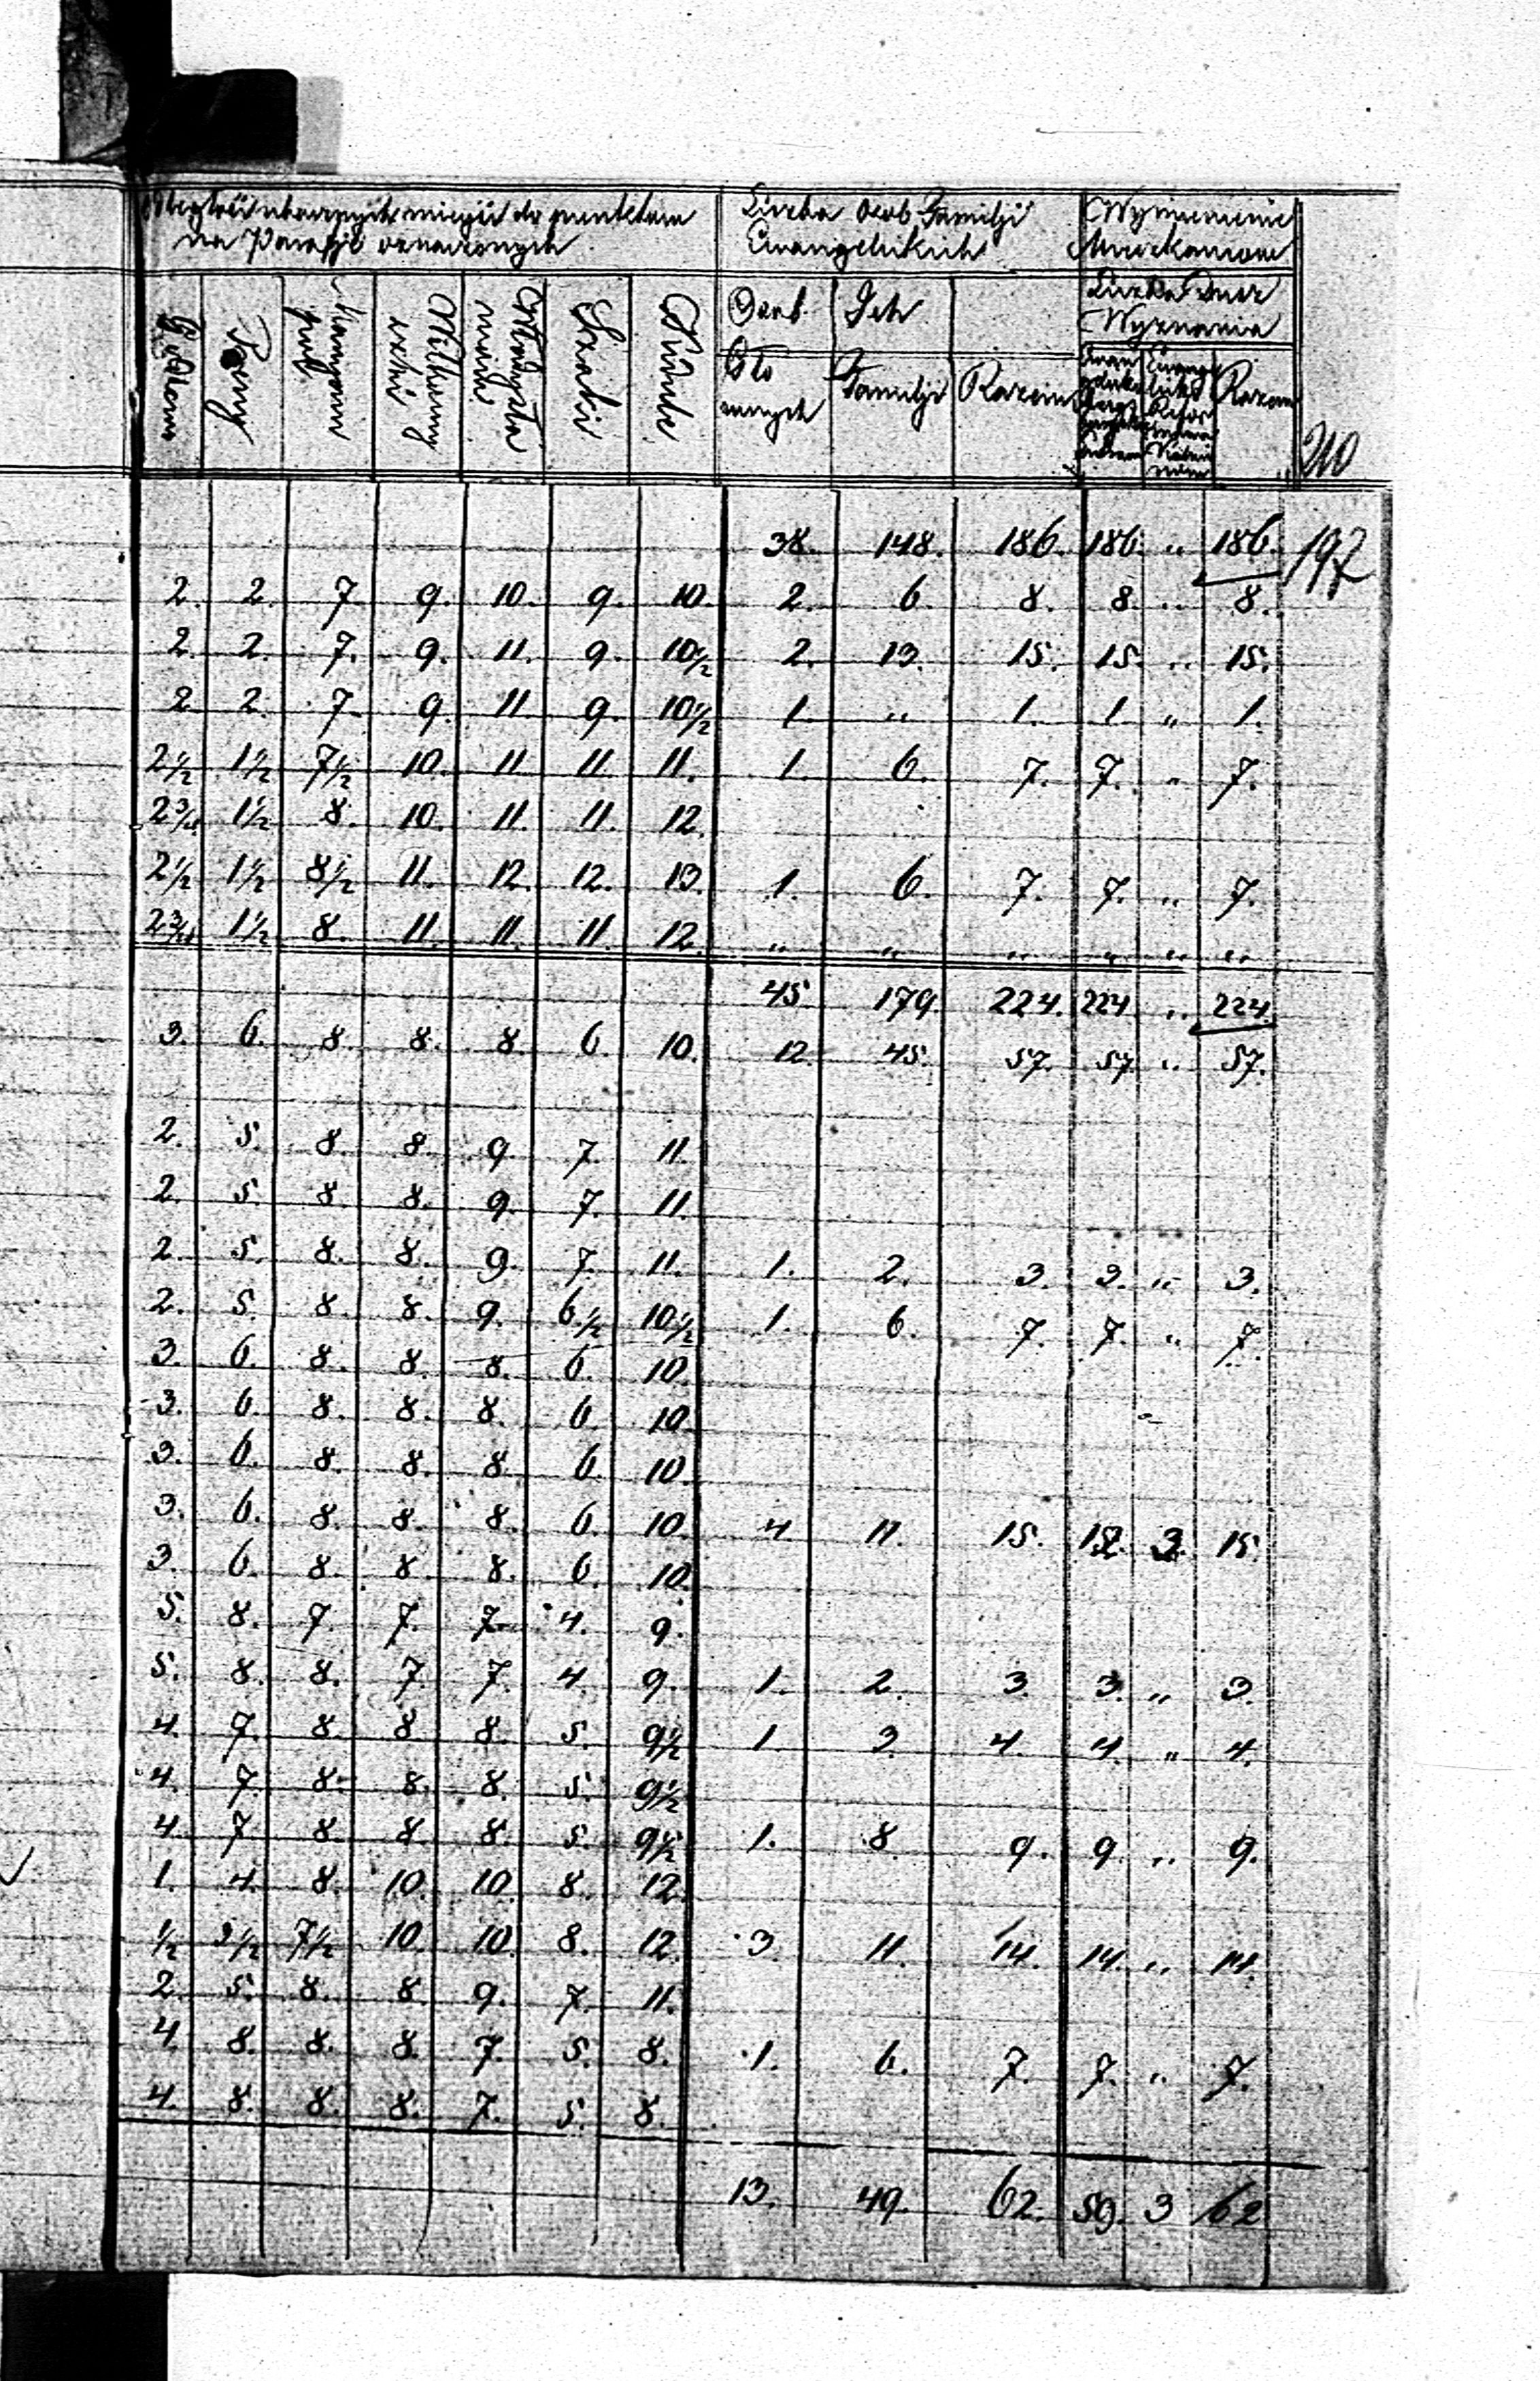 do punktow
na Parafji oznaczonych
Liczba Osob Familji
Ewangelickich
Wymienienie
Liczba Dusz
Wyznania
Osob Ich
Glo
wnych Familji Razem Razem
210
38. 148. 186. 186. " 186. 197
2. 2. 7. 9. 10. 9. 10. 2. 6. 8. 8. " 8.
2. 2. 7. 9. 11. 9. 10½ 2. 13. 15. 15. " 15.
2 2. 7. 9. 11. 9. 10½ 1. " 1. 1. " 1.
2½ 1½ 7½ 10. 11. 11. 11. 1. 6. 7. 7. " 7.
2¾ 1½ 8. 10. 11. 11. 12.
2½ 1½ 8½ 11. 12. 12. 13. 1. 6. 7. 7. " 7.
2¾ 1½ 8. 11. 11. 11. 12. " " " " " "
45 179. 224. 224 " 224.
3. 6. 8. 8. 8. 6. 10. 12. 45. 57. 57. " 57.
2. 5. 8. 8. 9. 7. 11.
2. 5. 8. 8. 9. 7. 11.
2. 5. 8. 8. 9. 7. 11. 1. 2. 3. 3. " 3.
2. 5. 8. 8. 9. 6½ 10½ 1. 6. 7. 7. " 7.
3. 6. 8. 8. 8. 6. 10.
3. 6. 8. 8. 8. 6 10.
3. 6. 8. 8. 8. 6. 10.
3. 6. 8. 8. 8. 6. 10. 4 11. 15. 12. 3. 15.
3. 6. 8. 8. 8. 6. 10.
5. 8. 7. 7. 7. 4. 9.
5. 8. 8. 7. 7. 4. 9. 1. 2. 3. 3. " 3.
4. 7. 8. 8. 8. 5. 9½ 1. 3. 4. 4. " 4.
4. 7. 8. 8. 8. 5. 9½
4. 7 8. 8. 8. 5. 9½ 1. 8. 9. 9. " 9.
1. 4. 8. 10. 10. 8. 12.
½ 3½ 7½ 10. 10. 8. 12. 3 11. 14. 14. " 14.
2. 5. 8. 8. 9. 7. 11.
4. 8. 8. 8. 7. 5. 8. 1. 6. 7. 7. " 7.
4. 8. 8. 8. 7. 5. 8.
13. 49. 62. 59. 3 62